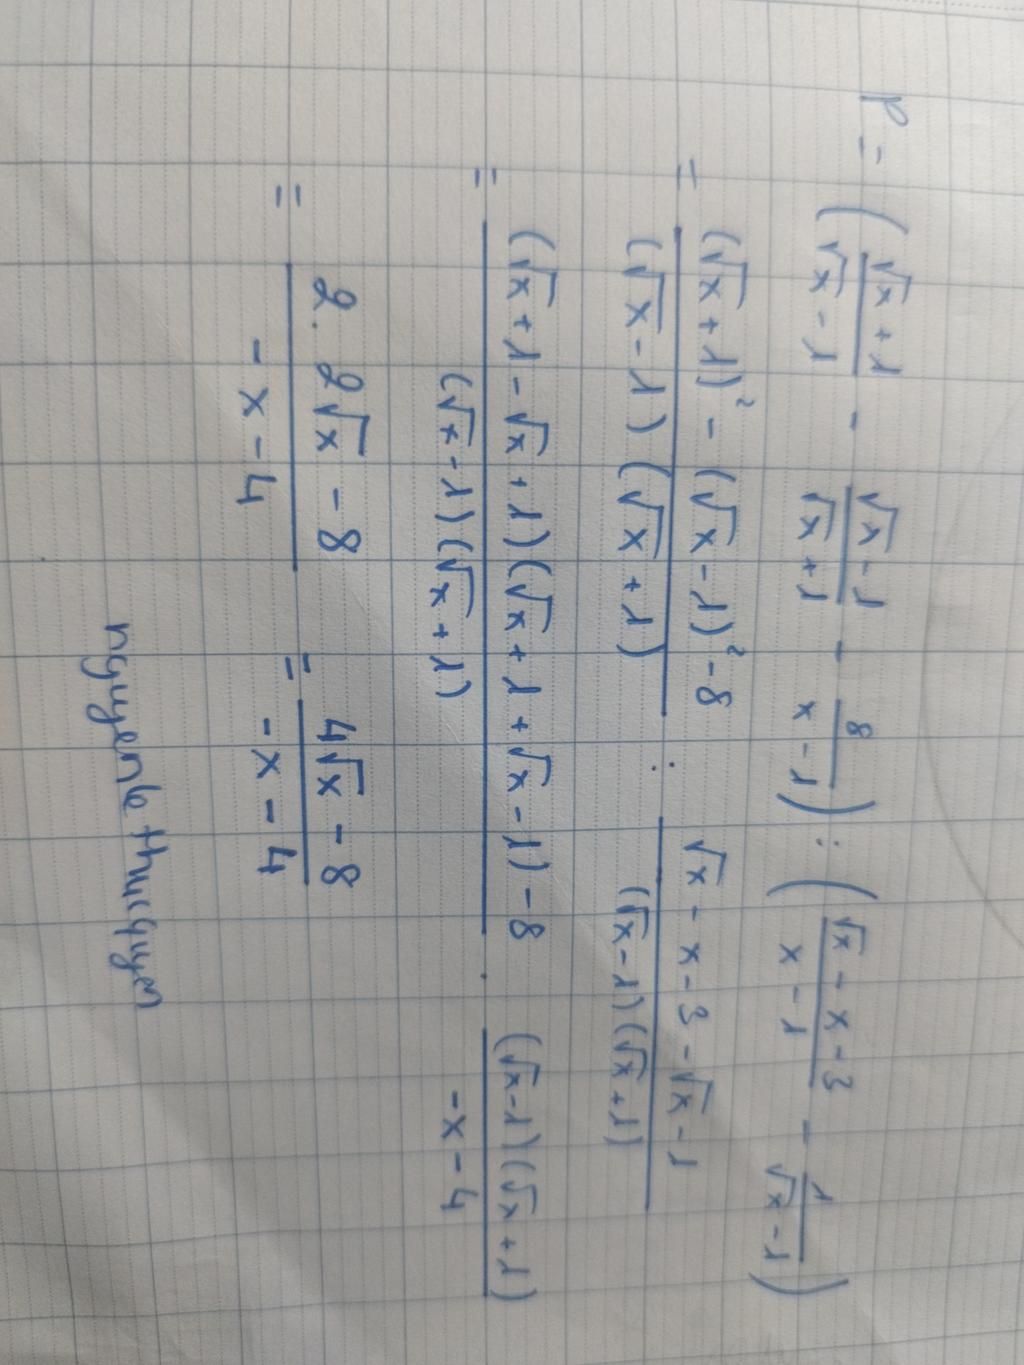 P = ( (√x + 1)/(√x - 1) - (√x - 1)/(√x + 1) - 8/(x - 1) ) : ( (√x - x - 3)/(x - 1) - 1/(√x - 1) )
= ((√x + 1)² - (√x - 1)² - 8)/((√x - 1)(√x + 1)) : (√x - x - 3 - √x - 1)/((√x - 1)(√x + 1))
= ((√x + 1 - √x + 1)(√x + 1 + √x - 1) - 8)/((√x - 1)(√x + 1)) . ((√x - 1)(√x + 1))/(-x - 4)
= (2. 2√x - 8)/(-x - 4) = (4√x - 8)/(-x - 4)